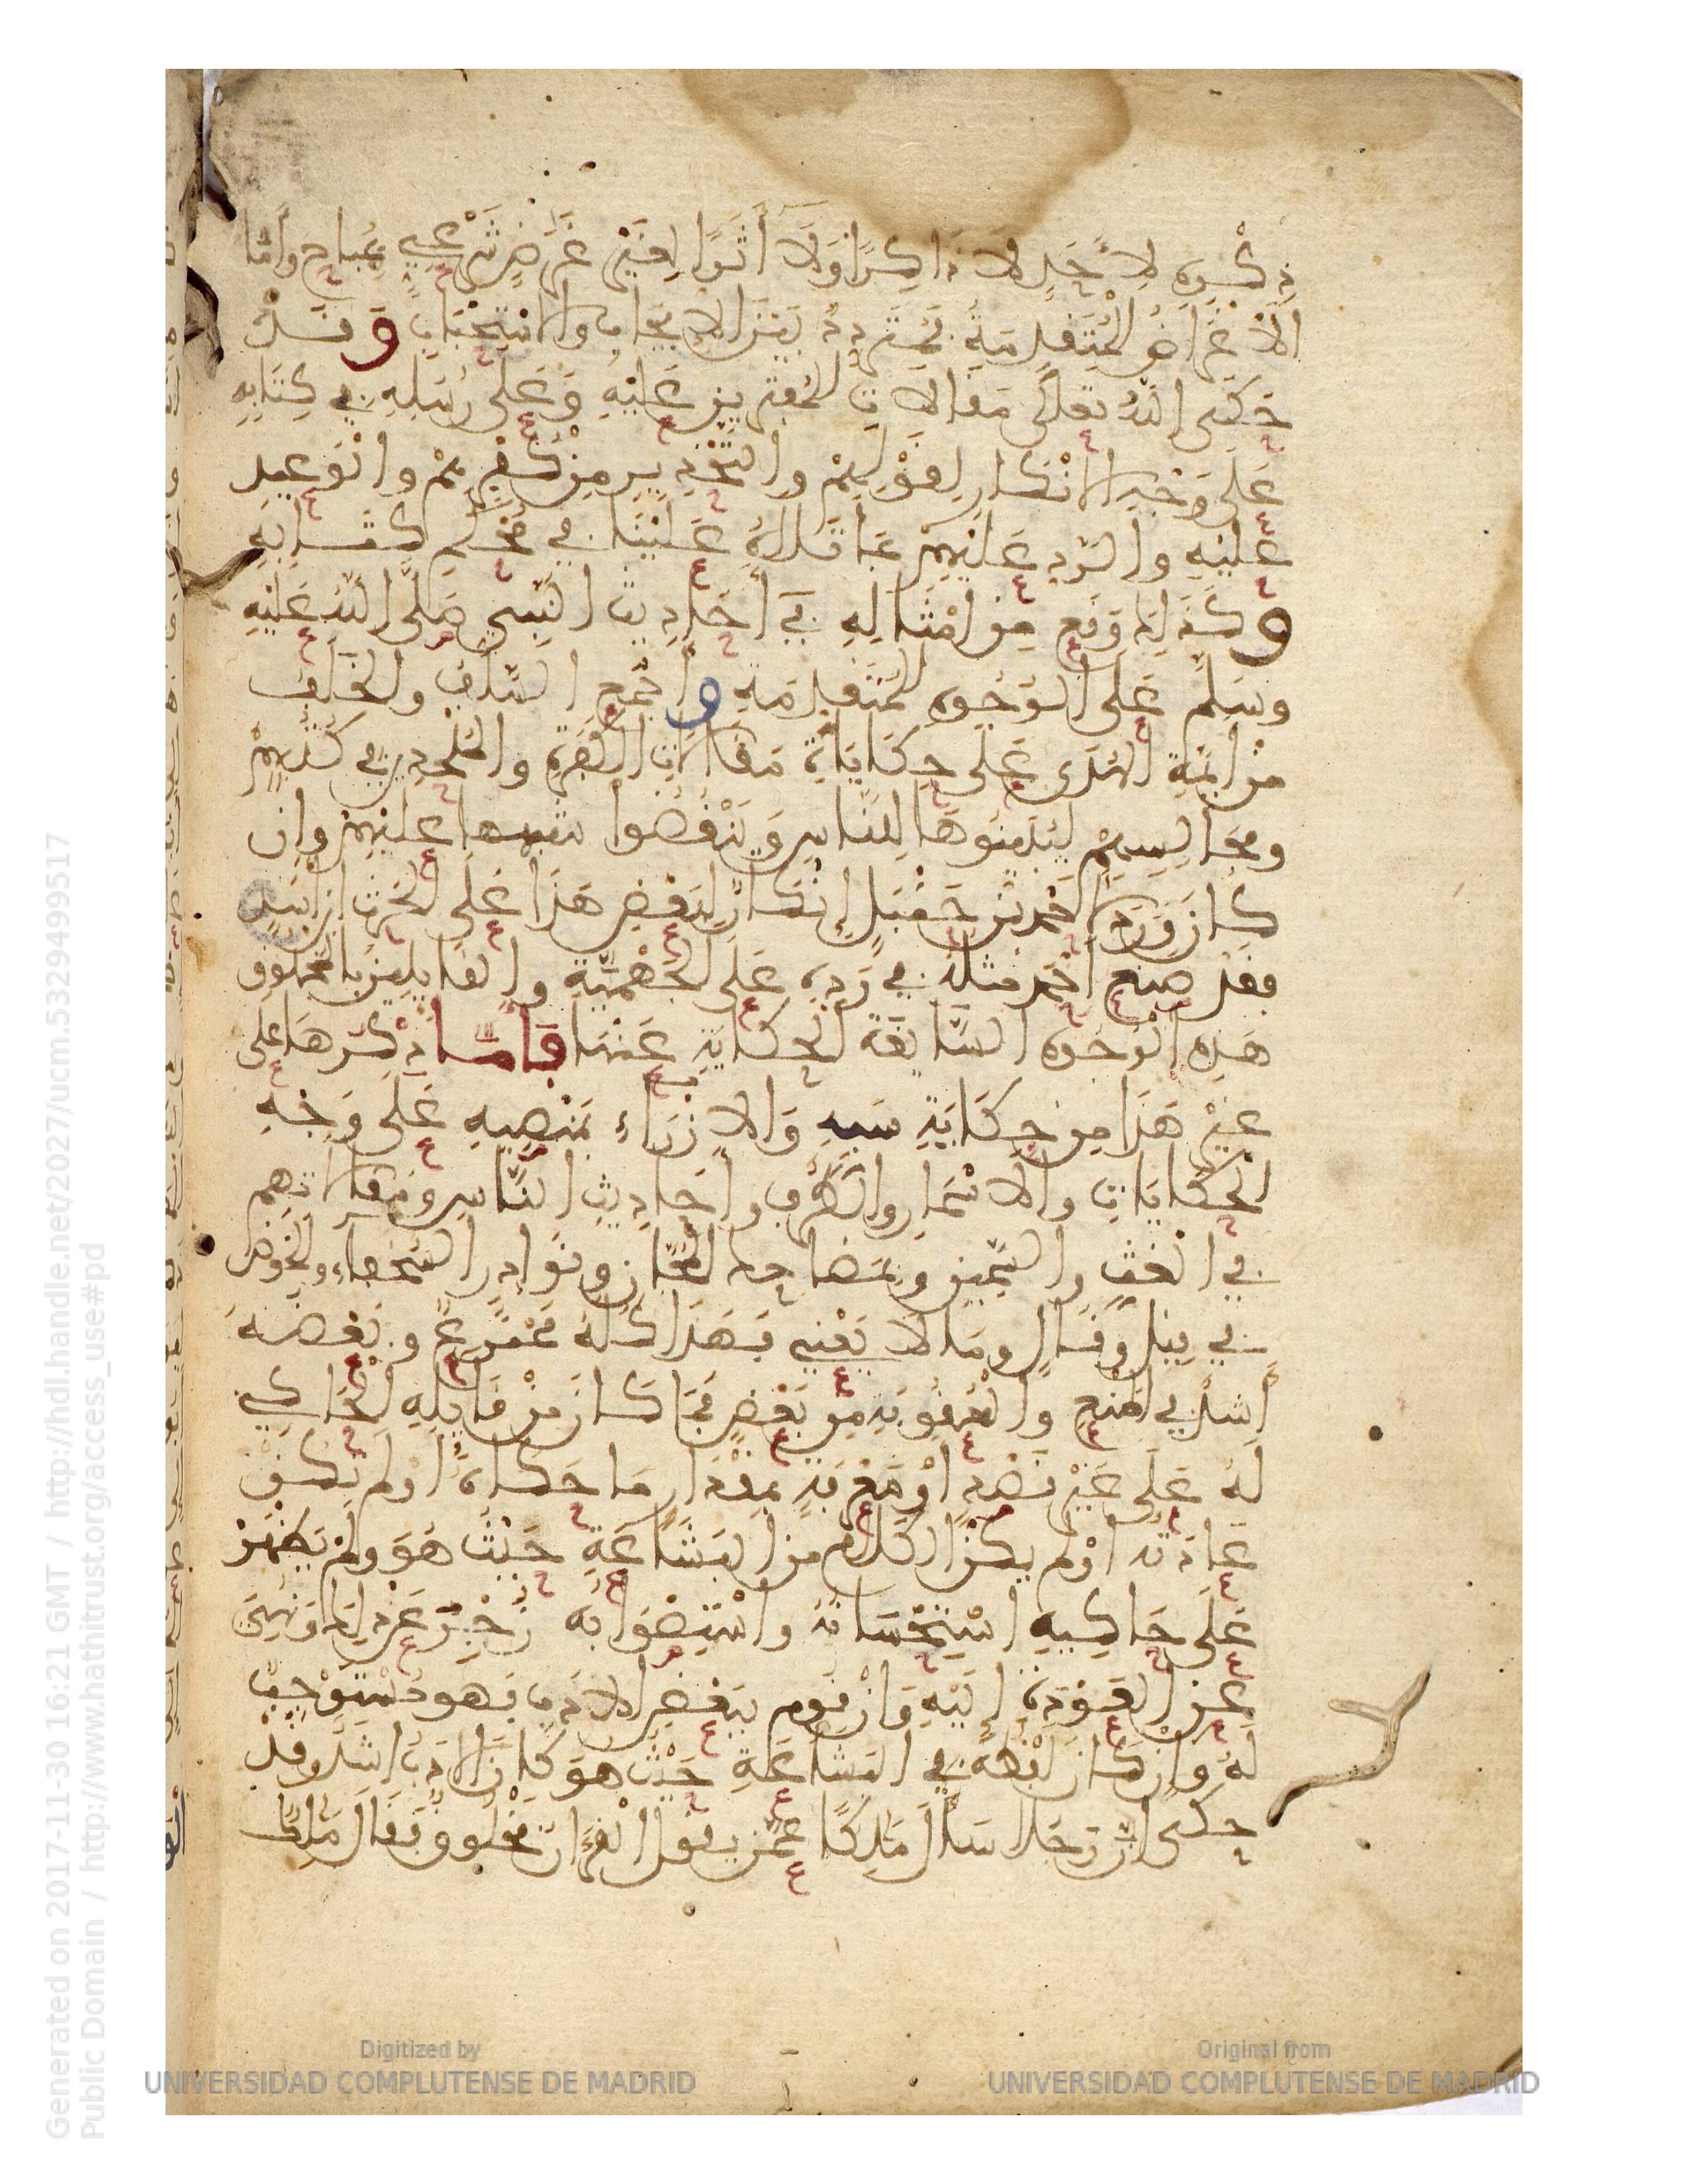 ذكره لأحد لا ذاكرا ولا آثرا لغير غرض شرعي بمباح وأما
الأغراض المتقدمة فمتردد بين الإيجاب والاستحباب وقد
حكى الله تعالى مقالات المفترين عليه وعلى رسله في كتابه
على وجه الإنكار لقولهم والتحذير من كفرهم والوعيد
عليه والرد عليهم بما تلاه علينا في محكم كتابه
وكذلك وقع من أمثاله في أحاديث النبي صلى الله عليه
وسلم على الوجوه المتقدمة وأجمع السلف والخلف
من أئمة الهدى على حكايات مقالات الكفرة والملحدين في كتبهم
ومجالسهم ليبينوها للناس وينقضوا شبهها عليهم وإن
كان ورد لأحمد بن حنبل إنكار لبعض هذا على الحرث بن أسد
فقد صنع أحمد مثله في رده على الجهمية والقايلين بالمخلوق
هذه الوجوه السايغة الحكاية عنها فأما ذكرها على
غير هذا من حكاية سبه والإزراء بمنصبه على وجه
الحكايات والأسمار والطرف وأحاديث الناس ومقالاتهم
في الغث والسمين ومضاحك المجان ونوادر السخفاء والخوض
في قيل وقال وما لا يعني فهذا كله ممنوع وبعضه
أشد في المنع والعقوبة من بعض فما كان من قايله الحاكي
له على غير قصد أو معرفة بمقدار ما حكاه أو لم تكن
عادته أو لم يكن الكلام من البشاعة حيث هو ولم يظهر
على حاكيه استحسانه واستصوابه زجر عن ذلك ونهي
عن العودة إليه وإن قوم ببعض الأدب فهو مستوجب
له وإن كان لفظه في البشاعة حيث هو كان الأدب أشد وقد
حكي أن رجلا سأل مالكا عمن يقول القرءان مخلوق فقال مالك